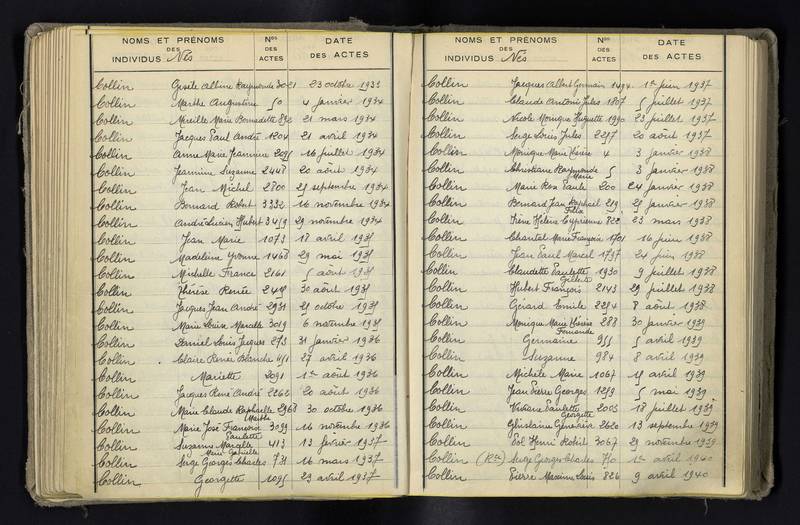 NOMS ET PRÉNOMS
DES
INDIVIDUS Nés
Nos
DES
ACTES
DATE
DES ACTES
Collin Gisèle Albine Raymonde 3021 23 octobre 1933
Collin Marthe Augustine 50 4 janvier 1934
Collin Mireille Marie Bernadette 892 21 mars 1934
Collin Jacques Paul André 1204 21 avril 1934
Collin Anne Marie Jeannine 2095 16 juillet 1934
Collin Jeannine Suzanne 2448 20 août 1934
Collin Jean Michel 2800 29 septembre 1934
Collin Bernard Robert 3332 16 novembre 1934
Collin André Lucien Hubert 3459 29 novembre 1934
Collin Jean Marie 1073 18 avril 1935
Collin Madeleine Yvonne 1468 29 mai 1935
Collin Michelle France 2161 5 août 1935
Collin Thérèse Renée 30 août 1935
Collin Jacques Jean André 2931 25 octobre 1935
Collin Marie Louise Marcelle 3019 6 novembre 1935
Collin Daniel Louis Jacques 273 31 janvier 1936
Collin Claire Renée Blanche 27 avril 1936
Collin Mariette 2091 1er août 1936
Collin Jacques René André 2262 20 août 1936
Collin Marie Claude Raphaelle 2968 30 octobre 1936
Marthe
Collin Marie José Françoise 3099 16 novembre 1936
Paulette
Collin Suzanne Marcelle 413 13 février 1937
Marie Gabrielle
Collin Serge Georges Charles 731 16 mars 1937
Collin Georgette 1095 29 avril 1937
NOMS ET PRÉNOMS
DES
INDIVIDUS Nés
Nos
DES
ACTES
DATE
DES ACTES
Collin Jacques Albert Germain 1494 1er juin 1937
Collin Claude Antoine Jules 1807 5 juillet 1937
Collin Nicole Monique Huguette 1990 23 juillet 1937
Collin Serge Louis Jules 2257 20 août 1937
Collin Monique Marie Thérèse 4 3 janvier 1938
Collin Christiane Raymonde 5 3 janvier 1938
Marie
Collin Marie Rose Paule 200 24 janvier 1938
Collin Bernard Jean Raphaël 259 29 janvier 1938
Félix
Collin Irène Hélène Cyprienne 822 23 mars 1938
Collin Chantal Marie Françoise 1701 16 juin 1938
Collin Jean Paul Marcel 1797 24 juin 1938
Collin Claudette Paulette 1930 9 juillet 1938
Gilberte
Collin Hubert François 2143 29 juillet 1938
Collin Gérard Emile 2254 8 août 1938
Collin Monique Marie Thérèse 288 30 janvier 1939
Fernande
Collin Germaine 955 5 avril 1939
Collin Suzanne 984 8 avril 1939
Collin Michèle Marie 1067 15 avril 1939
Collin Jean Pierre Georges 1259 5 mai 1939
Collin Viviane Paulette 2005 18 juillet 1939
Georgette
Collin Ghislaine Geneviève 2620 13 septembre 1939
Collin Pol Henri Robert 3067 29 novembre 1939
Collin (Rte) Serge Georges Charles 750 1er avril 1940
Collin Pierre Maxime Louis 826 9 avril 1940